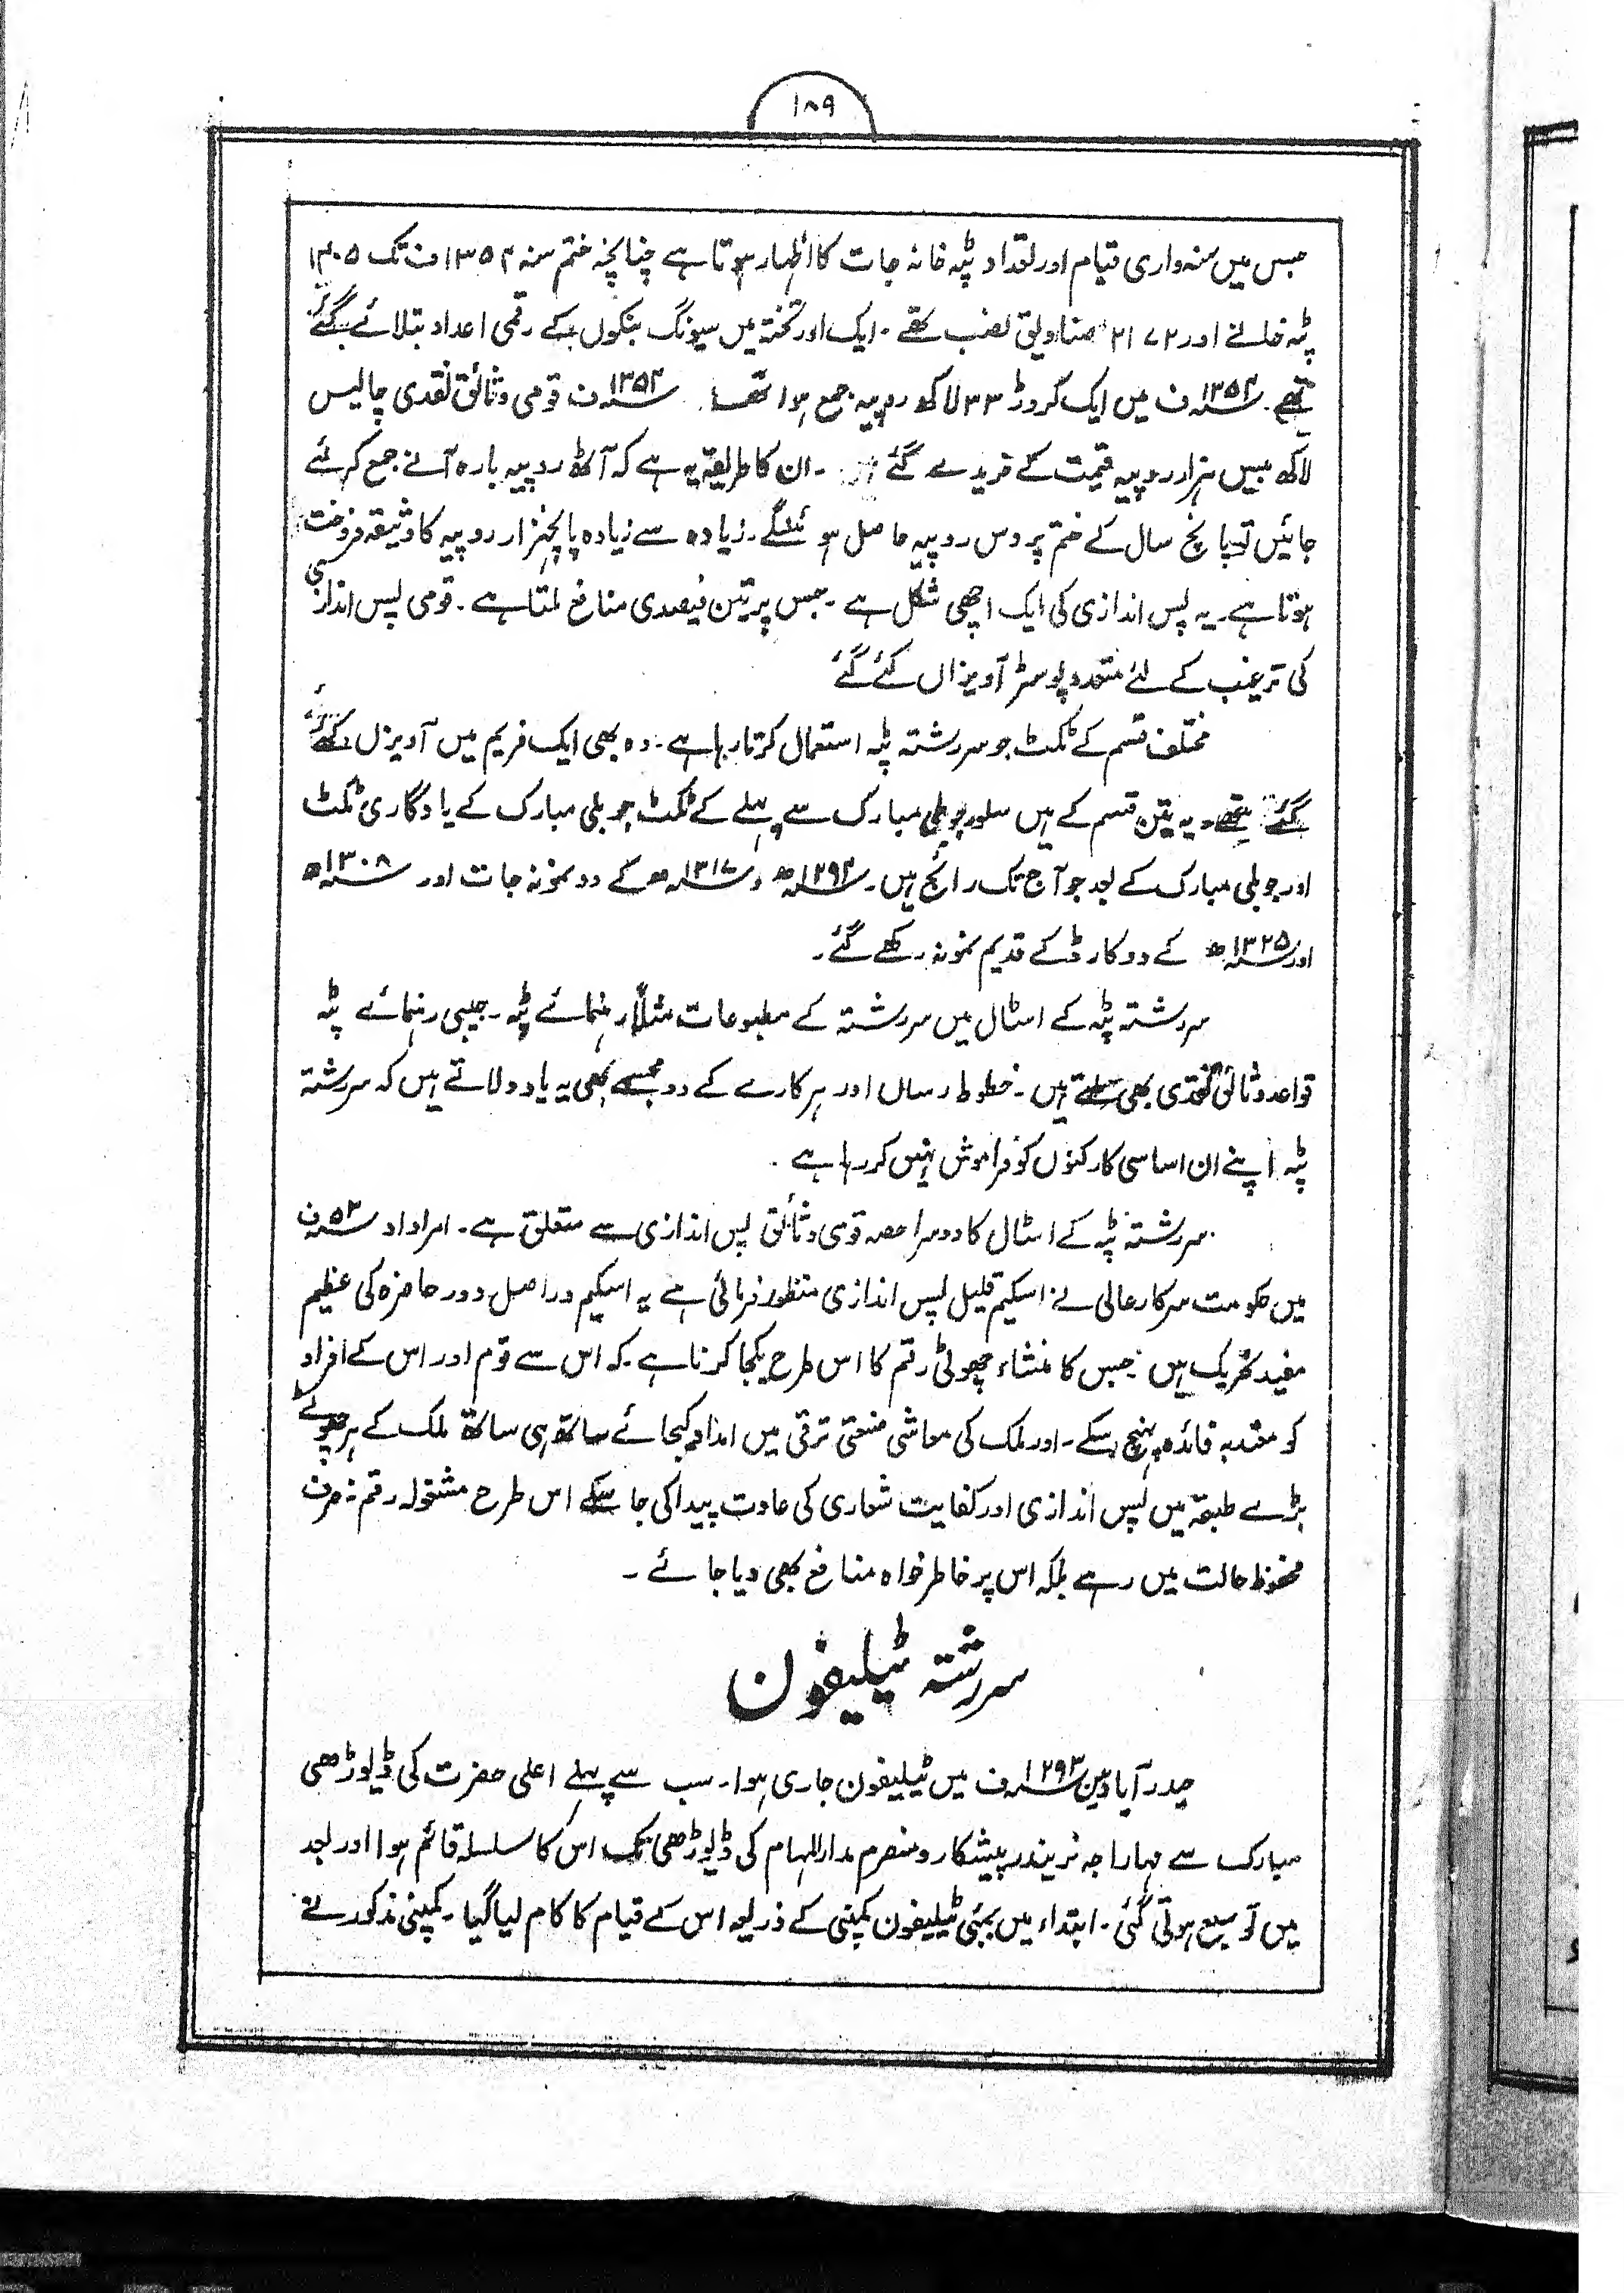 ۱۸۹
جس میں سنہ واری قیام اور تعداد ٹپہ خانہ جات کا اظہار ہوتا ہے چنانچہ ختم سنہ ۱۳۵۴ ف تک ۱۳۰۵
ٹپہ خانے اور ۲۱۷۲ صناویق نصب تھے ۔ ایک اور تختہ میں سیونگ بنکوں کے رقمی اعداد بتلائے گئے
تھے ۔ ۱۳۵۴ف میں ایک کروڑ ۳۳ لاکھ روپیہ جمع ہوا تھا ۔ ۱۳۵۴ف قومی وثائق نقدی چالیس
لاکھ بیس ہزار روپیہ قیمت کے خریدے گئے ۔ ان کا طریقہ یہ ہے کہ آٹھ روپیہ بارہ آنے جمع کرلئے
جائیں تو پانچ سال کے ختم پر دس روپیہ حاصل ہونگے ۔ زیادہ سے زیادہ پانچہزار روپیہ کا وثیقہ فروخت
ہوتا ہے ۔ یہ پس اندازی کی ایک اچھی شکل ہے ۔ جس پر تین فیصدی منافع ملتا ہے ۔ قومی پس اندازی
کی ترغیب کے لئے متعدد پوسٹر آویزاں کئے گئے
مختلف قسم کے ٹکٹ جو سررشتہ ٹپہ استعمال کرتا رہا ہے ۔ وہ بھی ایک فریم میں آویزاں کئے
گئے تھے ۔ یہ تین قسم کے ہیں سلور جوبلی مبارک سے پہلے کے ٹکٹ جوبلی مبارک کے یادگاری ٹکٹ
اور جوبلی مبارک کے بعد جو آج تک رائج ہیں ۔ ۱۲۹۴ھ و ۱۳۱۷ھ کے دو نمونہ جات اور ۱۳۰۸ھ
اور ۱۳۲۵ھ کے دو کارڈ کے قدیم نمونہ رکھے گئے ۔
سررشتہ ٹپہ کے اسٹال میں سررشتہ کے مطبوعات مثلاً رہنمائے ٹپہ ۔ جیبی رہنمائے ٹپہ
قواعد وثائق نقدی بھی ملتے ہیں ۔ خطوط رساں اور ہرکارے کے دو مجسمے بھی یہ یاد دلاتے ہیں کہ سررشتہ
ٹپہ اپنے ان اساسی کارکنوں کو فراموش نہیں کر رہا ہے ۔
سررشتہ ٹپہ کے اسٹال کا دوسرا حصہ قومی وثائق پس اندازی سے متعلق ہے ۔ امرداد ۵۳ف
میں حکومت سرکارعالی نے اسکیم قلیل پس اندازی منظور فرمائی ہے یہ اسکیم دراصل دور حاضرہ کی عظیم
مفید تحریک ہیں جس کا منشاء چھوٹی رقم کا اس طرح یکجا کرنا ہے ۔ کہ اس سے قوم اور اس کے افراد
کو معتدبہ فائدہ پہنچ سکے ۔ اور ملک کی معاشی صنعتی ترقی میں امداد کیجائے ساتھ ہی ساتھ ملک کے ہر چھوٹے
بڑے طبقہ میں پس اندازی اور کفایت شعاری کی عادت پیدا کی جا سکے اس طرح مشغولہ رقم نہ صرف
محفوظ حالت میں رہے بلکہ اس پر خاطر خواہ منافع بھی دیا جائے ۔
سررشتہ ٹیلیفون
حیدرآباد میں ۱۲۹۳ف میں ٹیلیفون جاری ہوا ۔ سب سے پہلے اعلی حضرت کی ڈیوڑھی
مبارک سے مہاراجہ نریندر پیشکار و منصرم مدارالمہام کی ڈیوڑھی تک اس کا سلسلہ قائم ہوا اور بعد
میں توسیع ہوتی گئی ۔ ابتداء میں بمبئی ٹیلیفون کمپنی کے ذریعہ اس کے قیام کا کام لیا گیا ۔ کمپنی مذکور نے